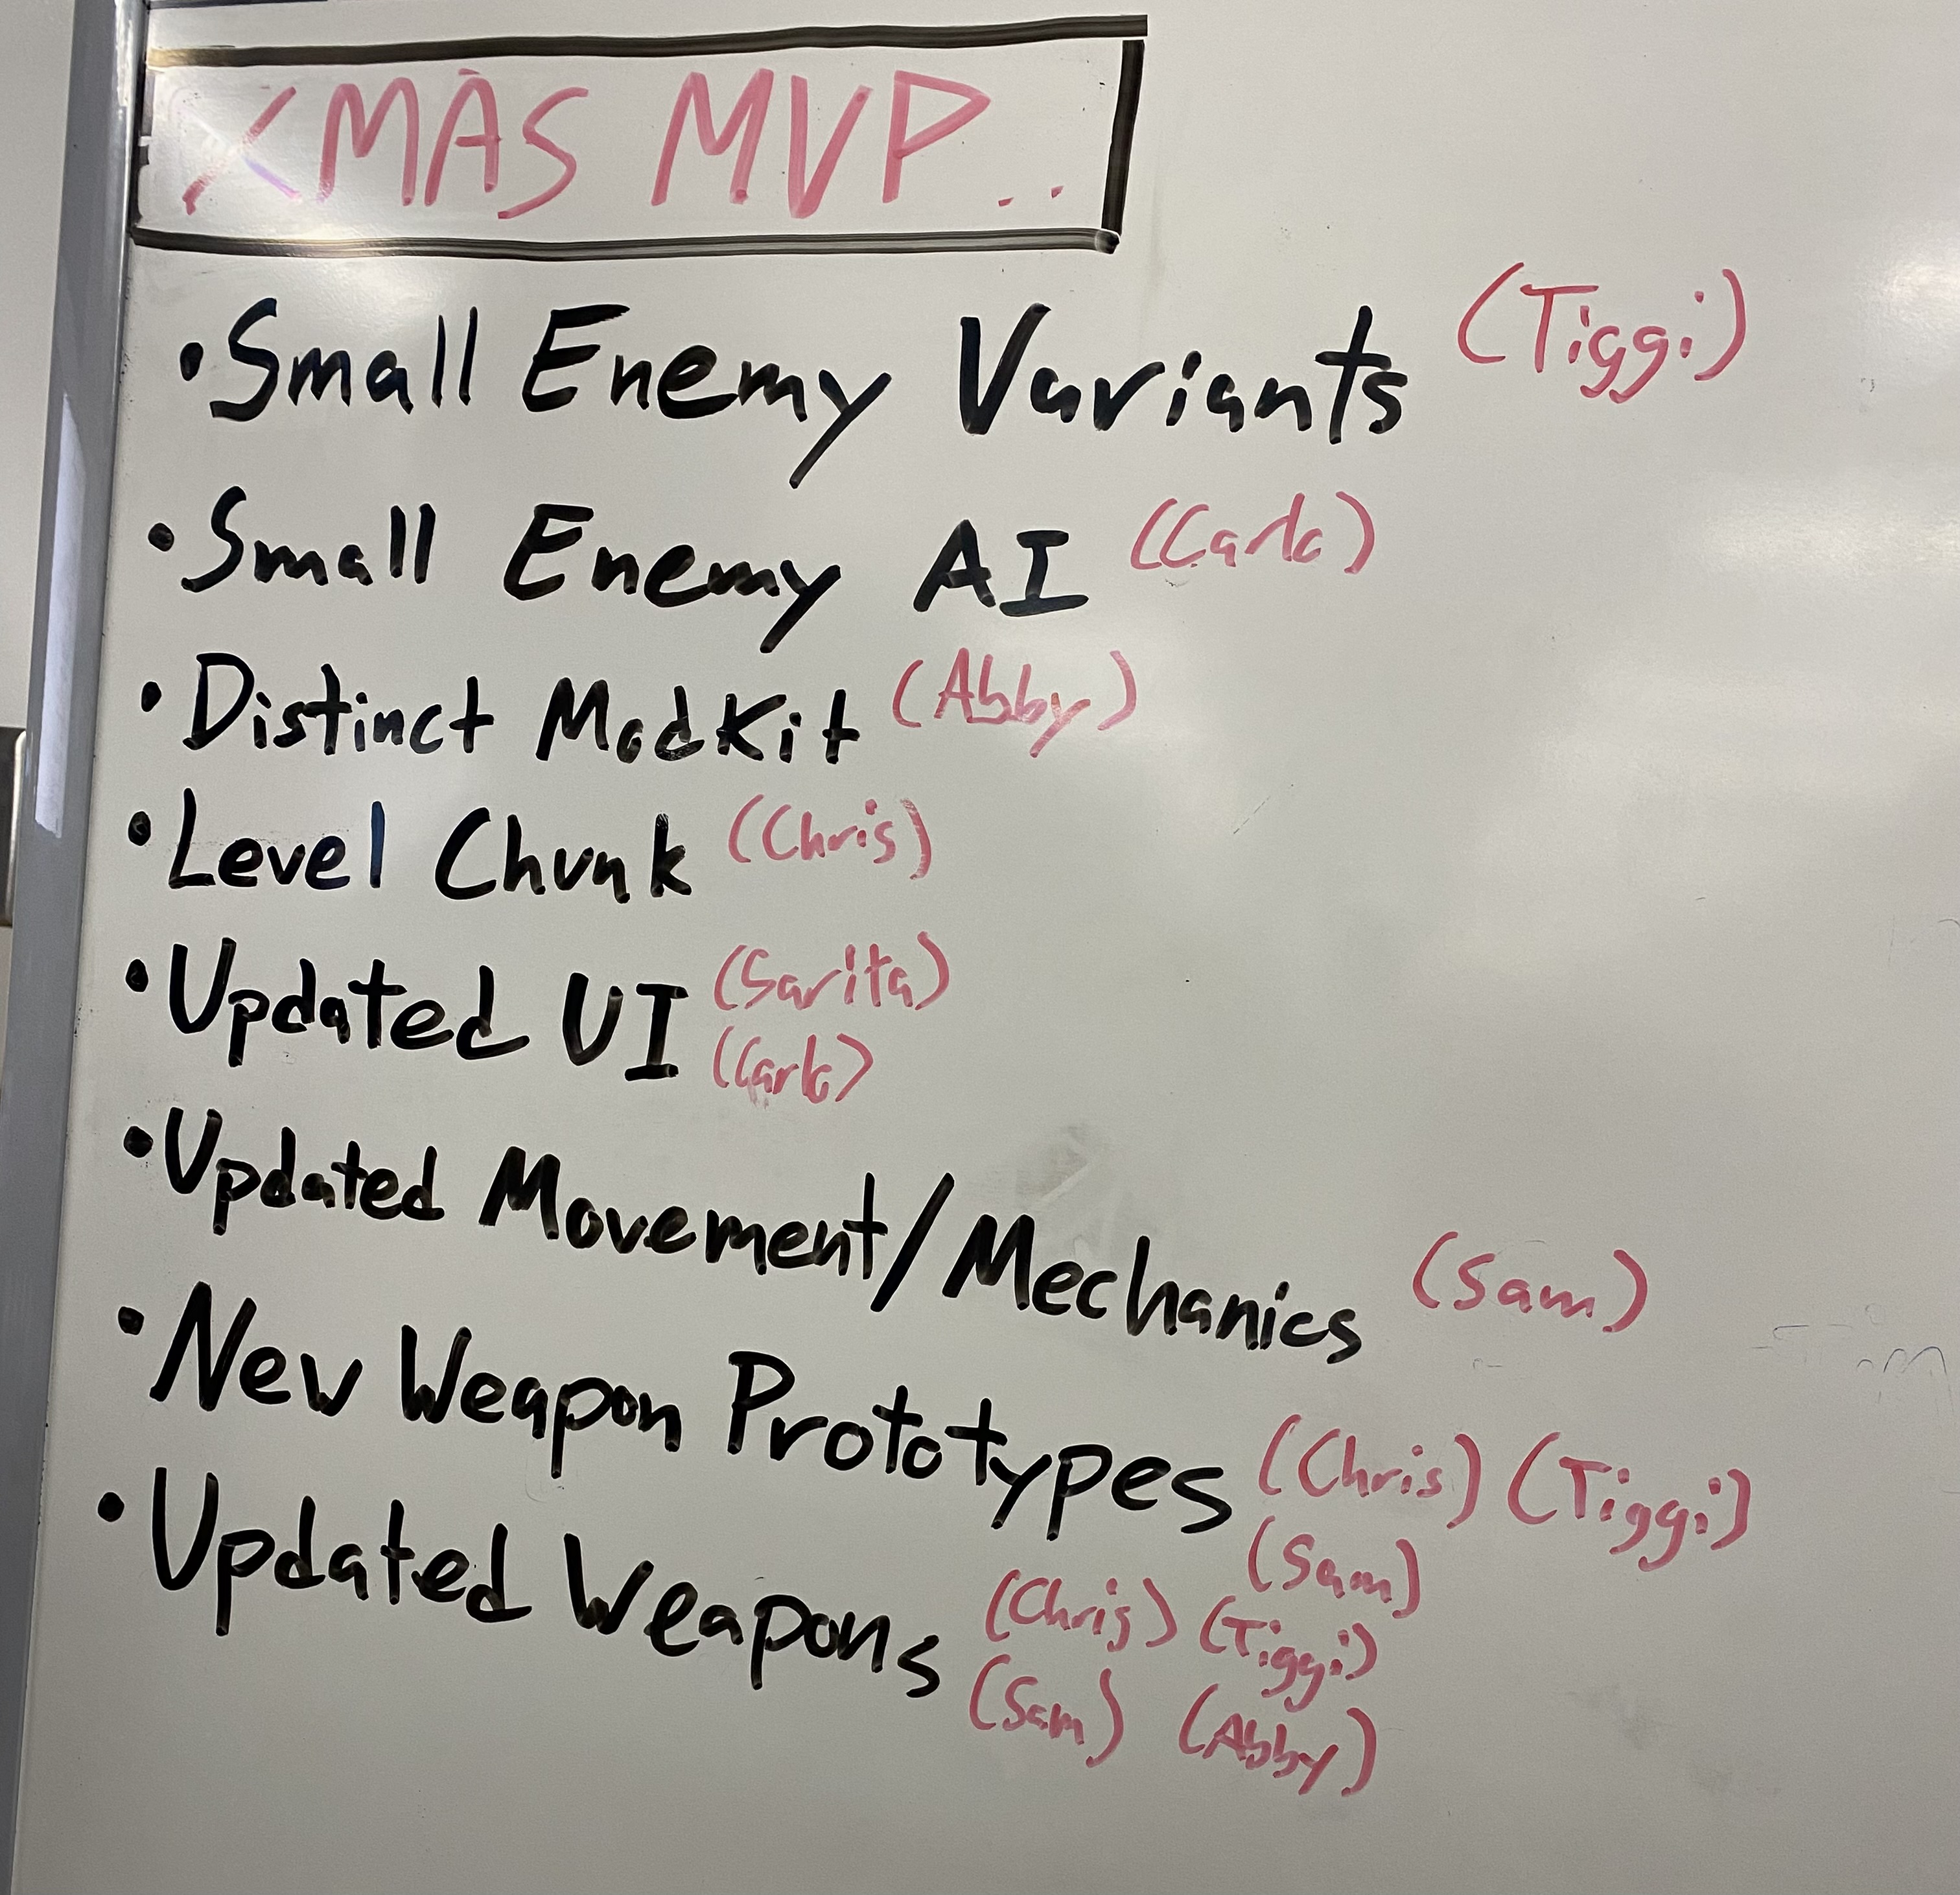 XMAS MVP..
• Small Enemy Variants (Tiggi)
• Small Enemy AI (Carlo)
• Distinct ModKit (Abby)
• Level Chunk (Chris)
• Updated UI (Sarita)
(Carlo)
• Updated Movement/Mechanics (Sam)
• New Weapon Prototypes (Chris) (Tiggi)
(Sam)
• Updated Weapons (Chris) (Tiggi)
(Sam) (Abby)